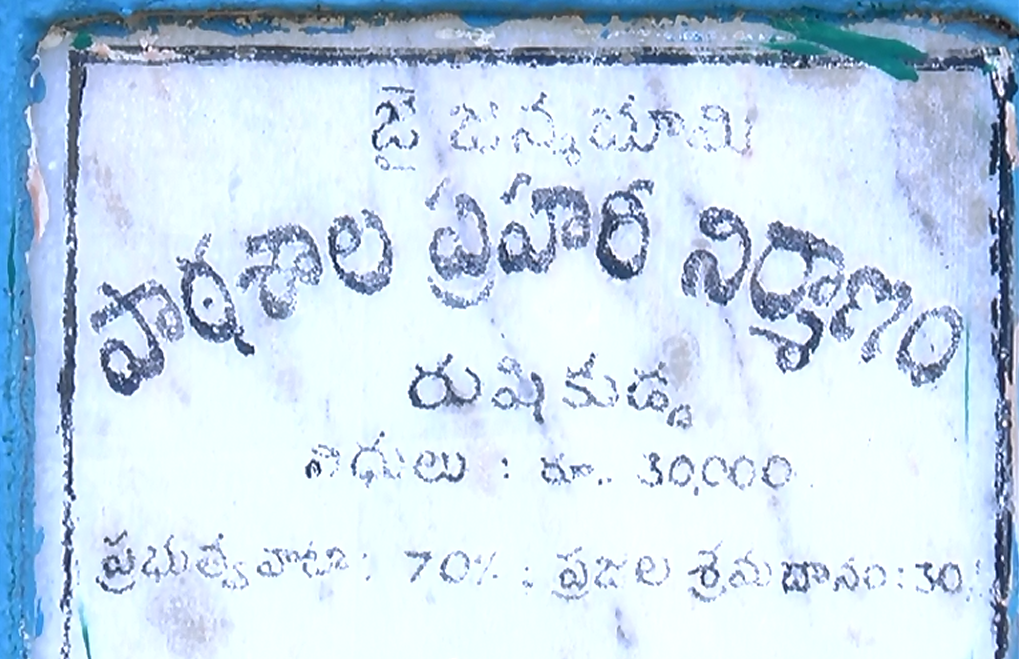 జై జన్మభూమి
పాఠశాల ప్రహరీ నిర్మాణం
రుషికుడ్డ
నిధులు : రూ.. 30,000
ప్రభుత్వ వాటా : 70% : ప్రజల శ్రమదానం : 30